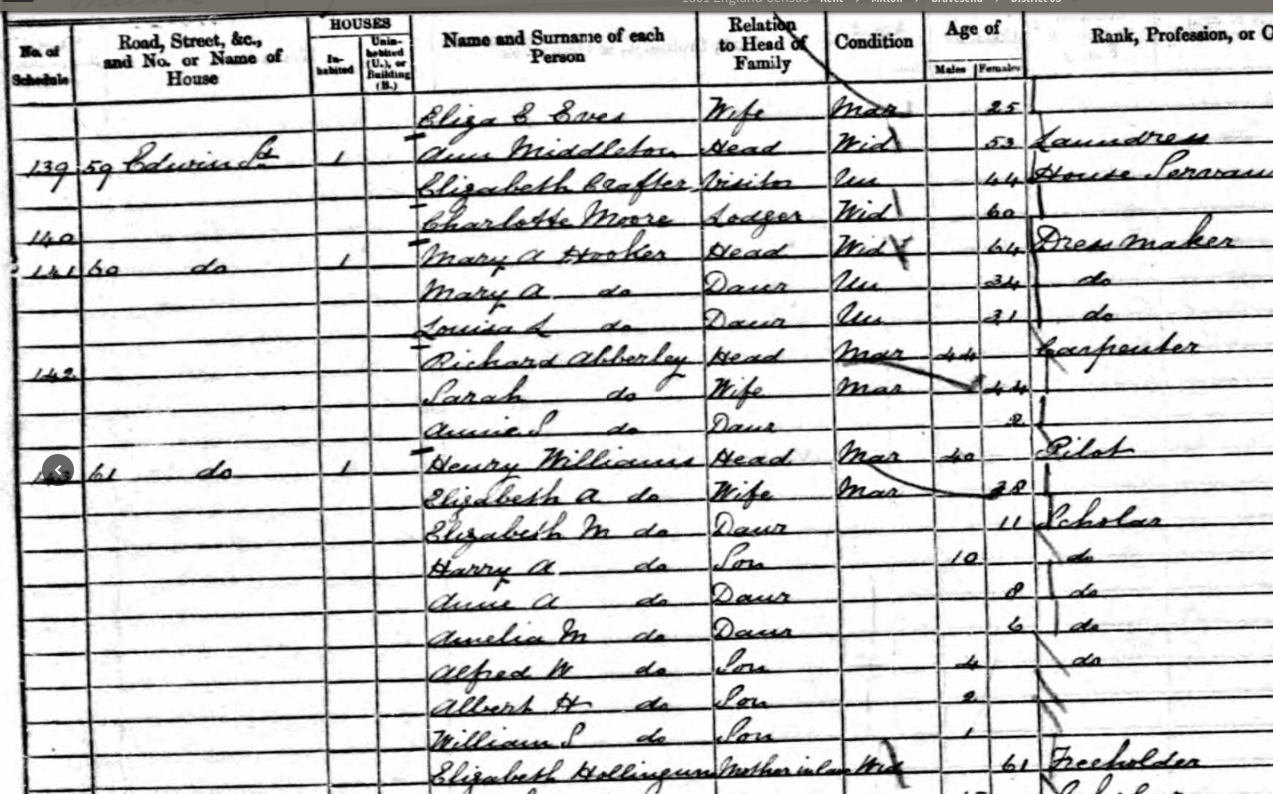 1881 England Census Kent Milton Gravesend District 05
No. of Schedule | Road, Street, &c., and No. or Name of House | HOUSES In-habited | Unin-habited (U.), or Building (B.) | Name and Surname of each Person | Relation to Head of Family | Condition | Age of Males | Females | Rank, Profession, or O
Eliza E Eves Wife Mar 25
139 59 Edwin St 1 Ann Middleton Head Wid 53 Laundress
Elizabeth Crafter Visitor Un 44 House Servan
140 Charlotte Moore Lodger Wid 60
141 60 do 1 Mary A Hooker Head Wid 64 Dress maker
Mary A do Daur Un 34 do
Louisa L do Daur Un 21 do
142 Richard Abberley Head Mar 44 Carpenter
Sarah do Wife Mar 44
Annie S do Daur 2
61 do 1 Henry Williams Head Mar 40 Pilot
Elizabeth A do Wife Mar 38
Elizabeth M do Daur 11 Scholar
Harry A do Son 10 do
Annie A do Daur 8 do
Amelia M do Daur 6 do
Alfred W do Son 4 do
Albert H do Son 2
William S do Son 1
Elizabeth Mother in law Wid 61 Freeholder